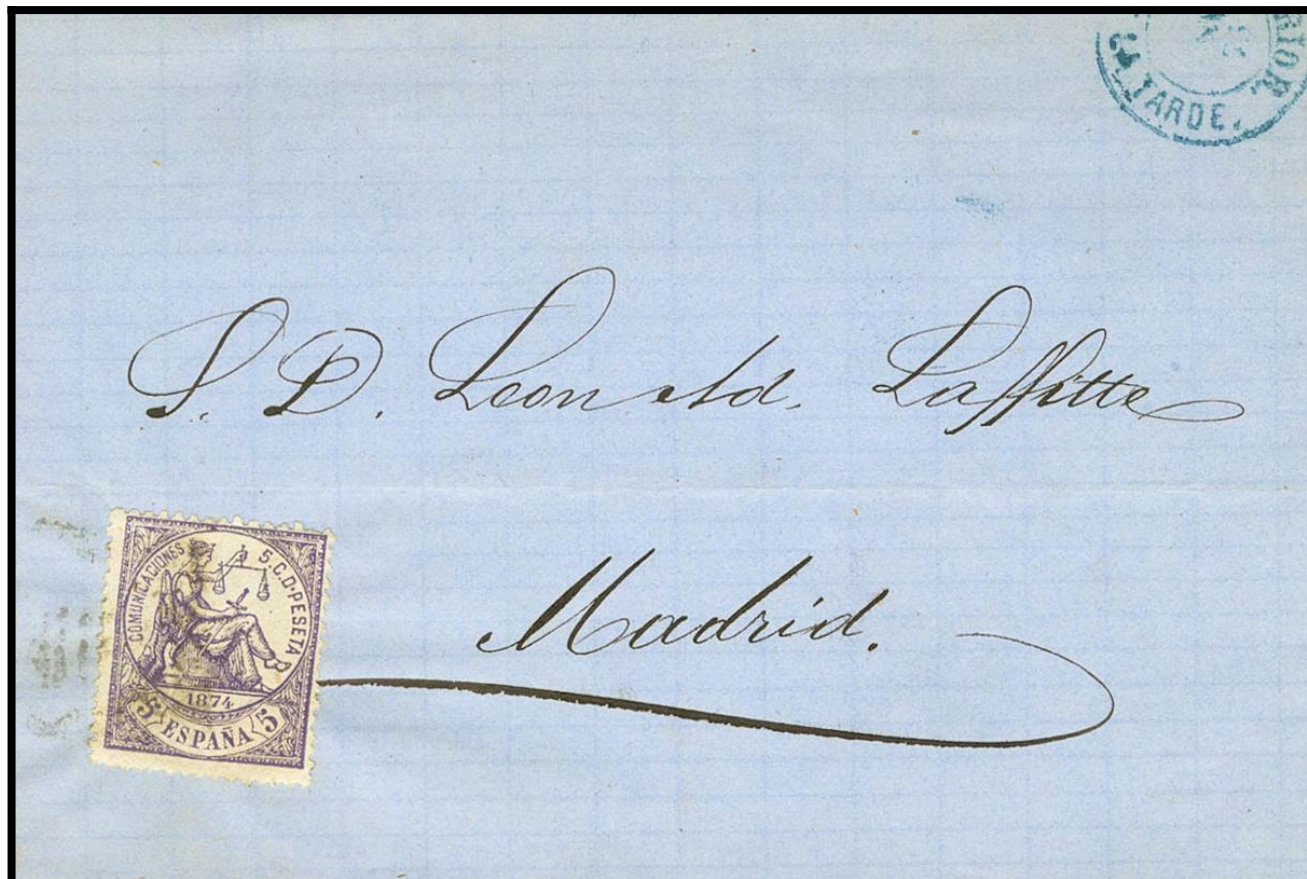 RIOR.
TARDE.
S. D. Leonald. Laffitte
Madrid.
COMUNICACIONES 5.C.D.PESETA
1874
5 ESPAÑA 5